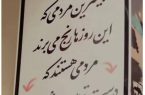 بیشترین مردمی که
این روزها رنج می برند
مردمی هستند که